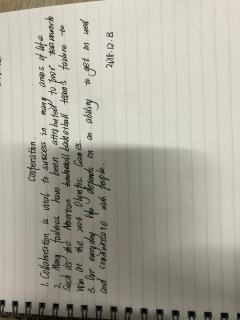 Cooperation
1. Collaboration is vital to success in many areas of life.
2. Many failures have been attributed to poor teamwork
Such as the American basketball team's failure to
win at the 2004 Olympic Games.
3. Our everyday life depends on an ability to get on well
and communicate with people.
2018.12.13